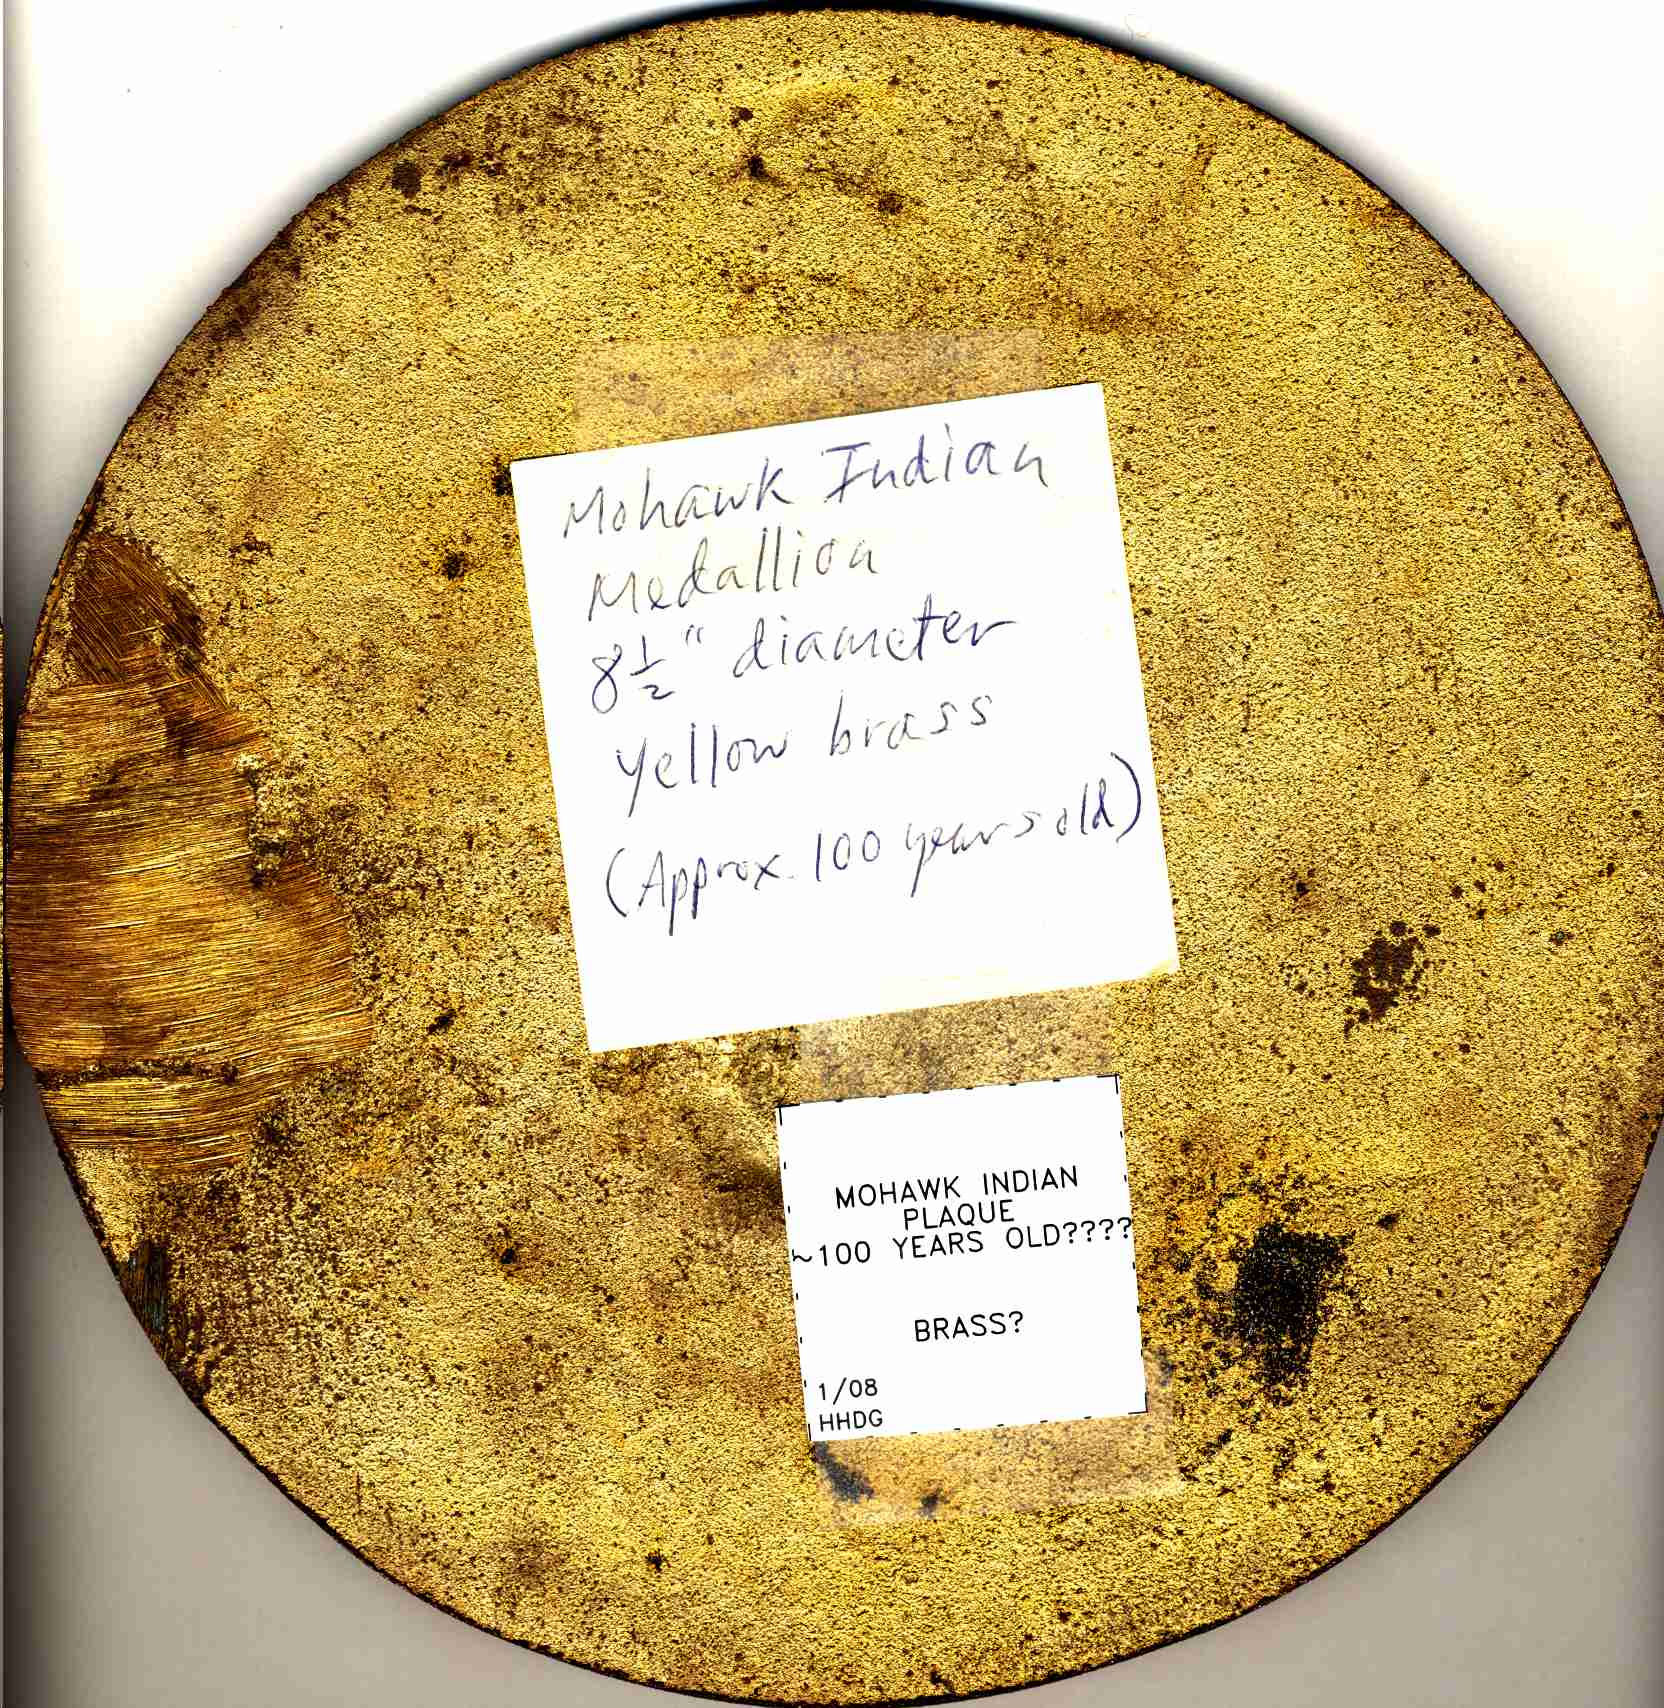 Mohawk Indian
Medallion
8 1/2" diameter
Yellow brass
(Approx. 100 years old)
MOHAWK INDIAN
PLAQUE
~100 YEARS OLD????
BRASS?
1/08
HHDG